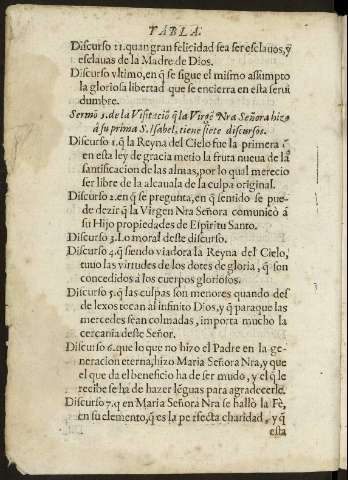 TABLA.
Discurso 11. quan gran felicidad sea ser esclauos, y
esclauas de la Madre de Dios.
Discurso vltimo, en q̃ se sigue el mismo assumpto
la gloriosa libertad que se encierra en esta serui
dumbre.
Sermõ 1. de la Visitaciõ q̃ la Virgẽ Nra Señora hizo
á su prima S. Isabel, tiene siete discursos.
Discurso 1. q̃ la Reyna del Cielo fue la primera q̃
en esta ley de gracia metio la fruta nueua de la
santificacion de las almas, por lo qual merecio
ser libre de la alcauala de la culpa original.
Discurso 2. en q̃ se pregunta, en q̃ sentido se pue
de dezir q̃ la Virgen Nra Señora comunicò á
su Hijo propiedades de Espiritu Santo.
Discurso 3. Lo moral deste discurso.
Discurso 4. q̃ siendo viadora la Reyna del Cielo,
tuuo las virtudes de los dotes de gloria, q̃ son
concedidos á los cuerpos gloriosos.
Discurso 5. q̃ las culpas son menores quando des
de lexos tocan al infinito Dios, y q̃ para que las
mercedes sean colmadas, importa mucho la
cercania deste Señor.
Discurso 6. que lo que no hizo el Padre en la ge-
neracion eterna, hizo Maria Señora Nra, y que
el que da el beneficio ha de ser mudo, y el q̃ le
recibe se ha de hazer lẽguas para agradecerle.
Discurso 7. q̃ en Maria Señora Nra se hallò la Fè,
en su elemento, q̃ es la perfecta charidad, y q̃
esta